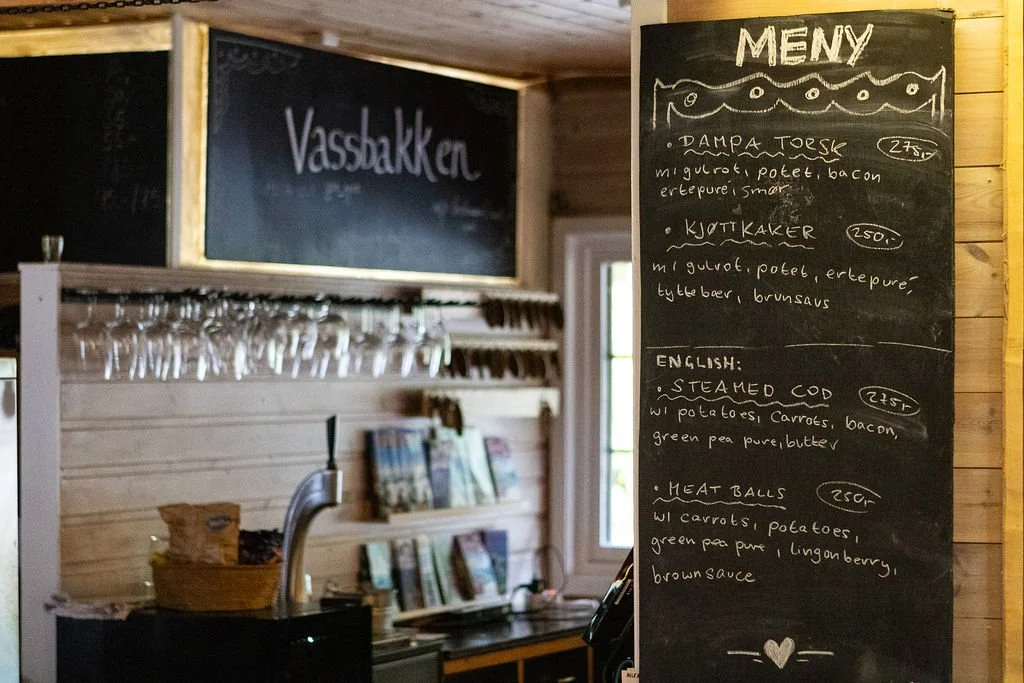 Vassbakken
MENY
• DAMPA TORSK 275,-
m/ gulrot, potet, bacon
ertepure, smør
• KJØTTKAKER 250,-
m/ gulrot, potet, ertepure,
tyttebær, brunsaus
ENGLISH:
• STEAMED COD 275,-
w/ potatoes, carrots, bacon,
green pea pure, butter
• MEAT BALLS 250,-
w/ carrots, potatoes,
green pea pure, lingonberry,
brown sauce